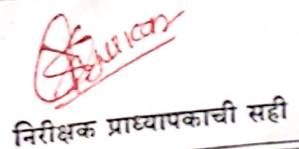 निरीक्षक प्राध्यापकाची सही